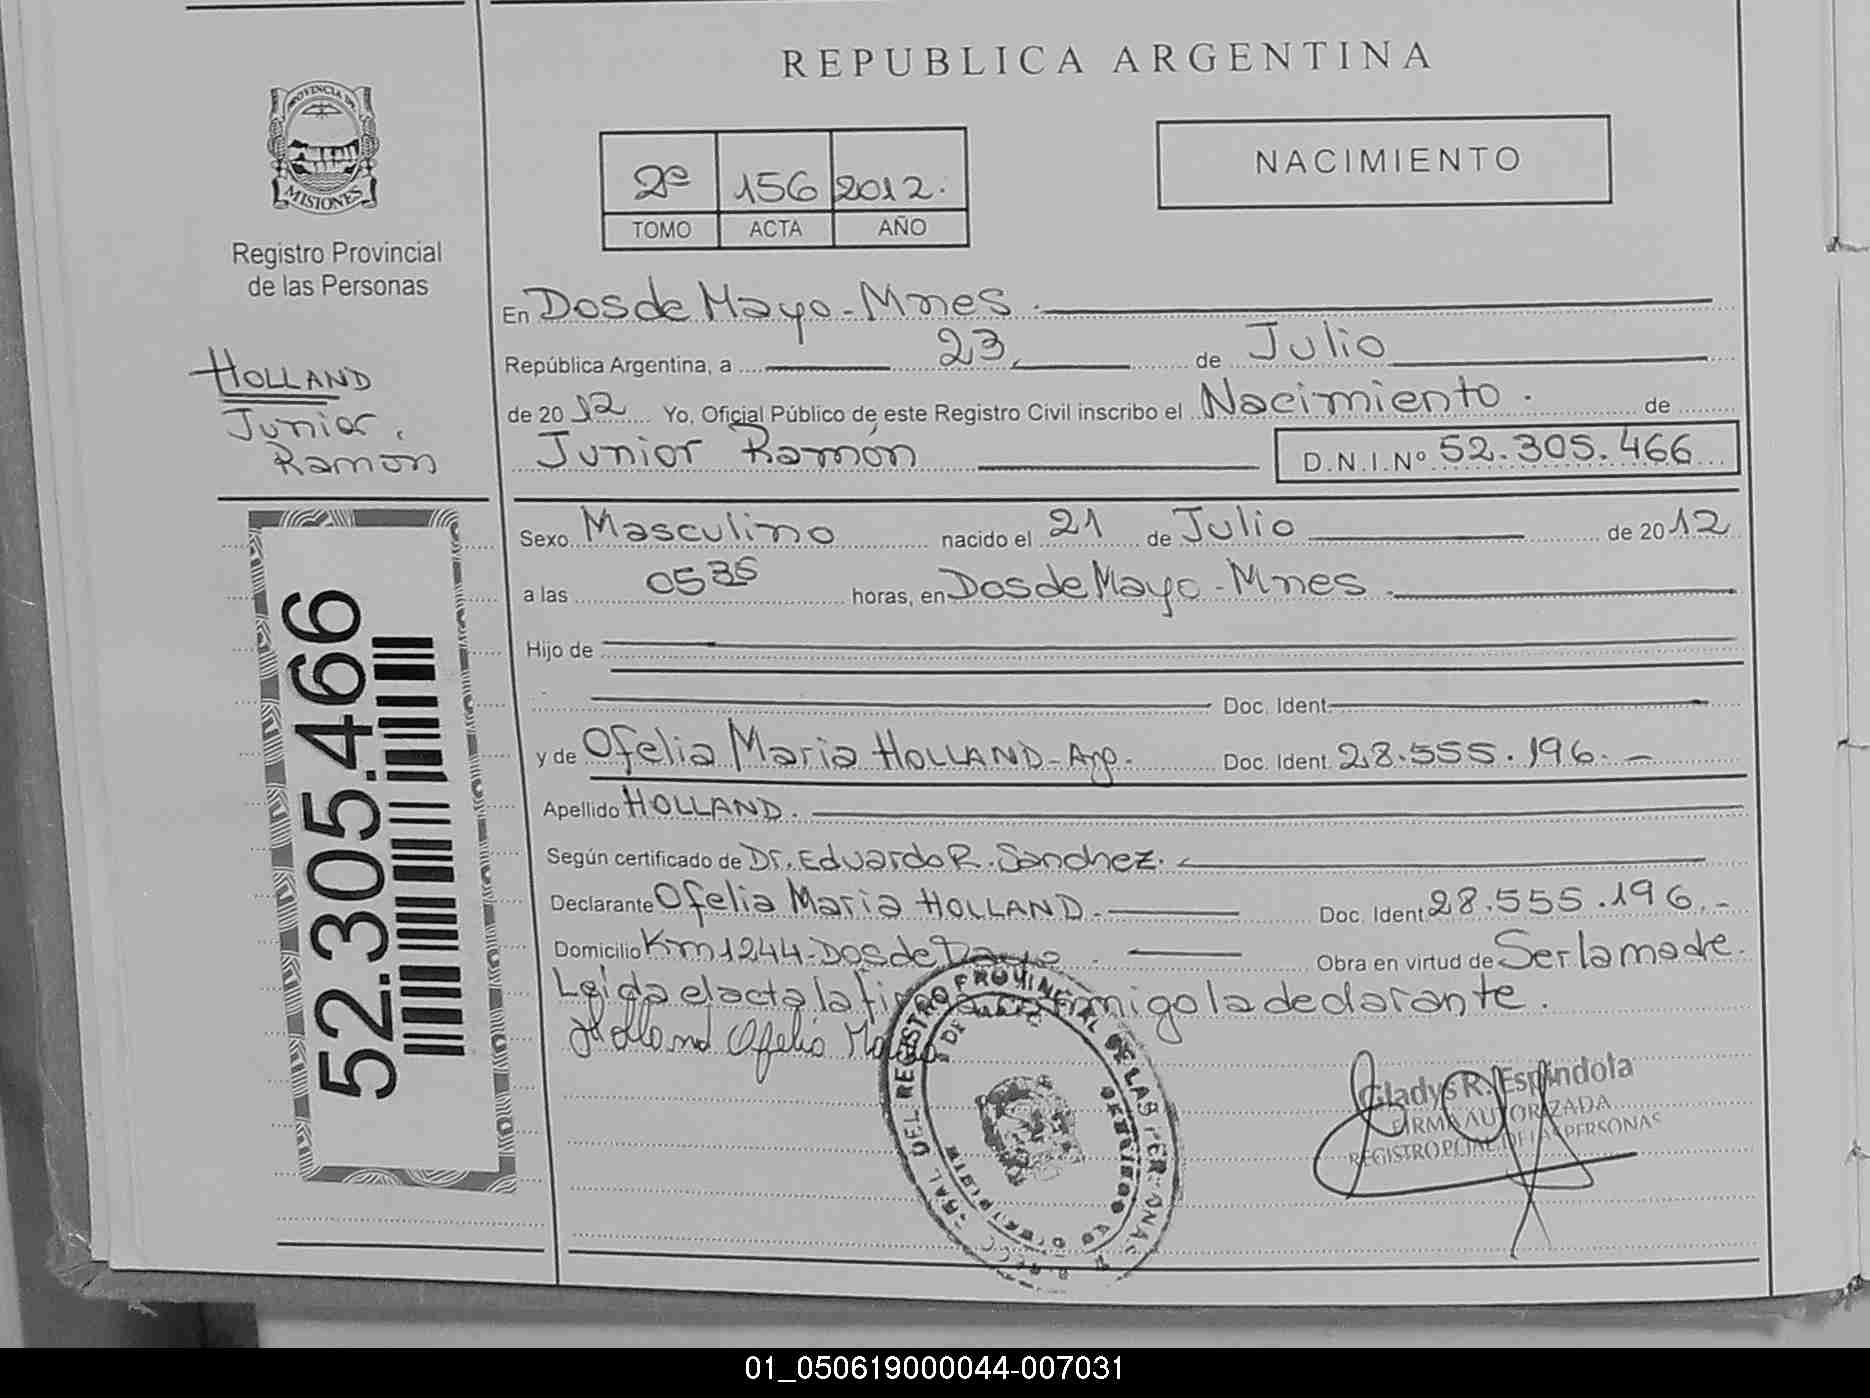 REPUBLICA ARGENTINA
PROVINCIA DE
MISIONES
Registro Provincial
de las Personas
2º 156 2012.
TOMO ACTA AÑO
NACIMIENTO
HOLLAND
Junior,
Ramon
52.305.466
En Dos de Mayo - Mnes.
República Argentina, a 23, de Julio
de 2012 Yo, Oficial Público de este Registro Civil inscribo el Nacimiento. de
Junior Ramón D.N.I.Nº 52.305.466
Sexo Masculino nacido el 21 de Julio de 2012
a las 0535 horas, en Dos de Mayo - Mnes.
Hijo de
Doc. Ident.
y de Ofelia Maria HOLLAND - Arg. Doc. Ident. 28.555.196.-
Apellido HOLLAND.
Según certificado de Dr. Eduardo R. Sanchez.
Declarante Ofelia Maria HOLLAND. Doc. Ident. 28.555.196.-
Domicilio Km 1244 - Dos de Mayo. Obra en virtud de Ser la madre.
Leida el acta la firma conmigo la declarante.
Holland Ofelia Maria
DEL REGISTRO PROVINCIAL DE LAS PERSONAS
Gladys R. Espindola
FIRMA AUTORIZADA
REGISTRO PCIAL. DE LAS PERSONAS
01_050619000044-007031